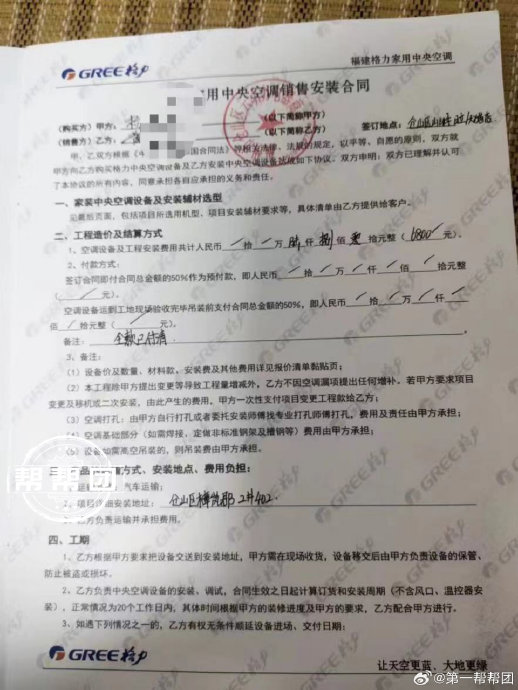 GREE格力
福建格力家用中央空调
用中央空调销售安装合同
(购买方) 甲方: (以下简称甲方)
(销售方) 乙方: (以下简称乙方) 签订地点: 仓山区
甲、乙双方根据《 国合同法》等相关法律、法规的规定, 以平等、自愿的原则, 双方就
甲方向乙方购买格力中央空调设备及乙方安装中央空调设备达成如下协议。双方申明: 双方已理解并认可
了本协议的所有内容, 同意承担各自应承担的义务和责任。
一、家装中央空调设备及安装辅材选型
见最后页面, 包括项目所选用机型、项目安装辅材要求等, 具体清单由乙方提供给客户。
二、工程造价及结算方式
1、空调设备及工程安装费用共计人民币 / 拾 / 万 陆 仟 捌 佰 零 拾元整 ( 6800/ 元)。
2、付款方式:
签订合同即付合同总金额的50%作为预付款, 即人民币 / 拾 / 万 / 仟 / 佰 / 拾元整
( / 元)。
空调设备运到工地现场验收完毕吊装前支付合同总金额的50%, 即人民币 / 拾 / 万 / 仟 /
佰 / 拾元整 ( / 元)。
备注: 全款已付清
3、备注:
(1) 设备价及数量、材料款、安装费及其他费用详见报价清单黏贴页;
(2) 本工程除甲方提出变更等导致工程量增减外, 乙方不因空调漏项提出任何增补。若甲方要求项目
变更及移机或二次安装, 由此产生的费用, 甲方一次性支付项目变更工程款给乙方;
(3) 空调打孔: 由甲方自行打孔或者委托安装师傅找专业打孔师傅打孔, 费用及责任由甲方承担;
(4) 空调基础部分 (如需焊接、定做非标准钢架及槽钢等) 费用由甲方承担;
(5) 设备如需高空吊装的, 则吊装费由甲方承担。
三、 方式、安装地点、费用负担:
汽车运输;
2、项目详细安装地址: 仓山区 郡 2# 402
3、乙方负责运输并承担费用。
四、工期
1、乙方根据甲方要求把设备交送到安装地址, 甲方需在现场收货, 设备移交后由甲方负责设备的保管、
防止被盗或损坏。
2、乙方负责中央空调设备的安装、调试, 合同生效之日起计算订货和安装周期 (不含风口、温控器安
装), 正常情况为20个工作日内, 其体时间根据甲方的装修进度及甲方的要求, 乙方配合甲方进行。
3、如遇下列情况之一的, 乙方有权无条件顺延设备进场、交付日期:
GREE格力
让天空更蓝、大地更绿
帮帮团
@第一帮帮团